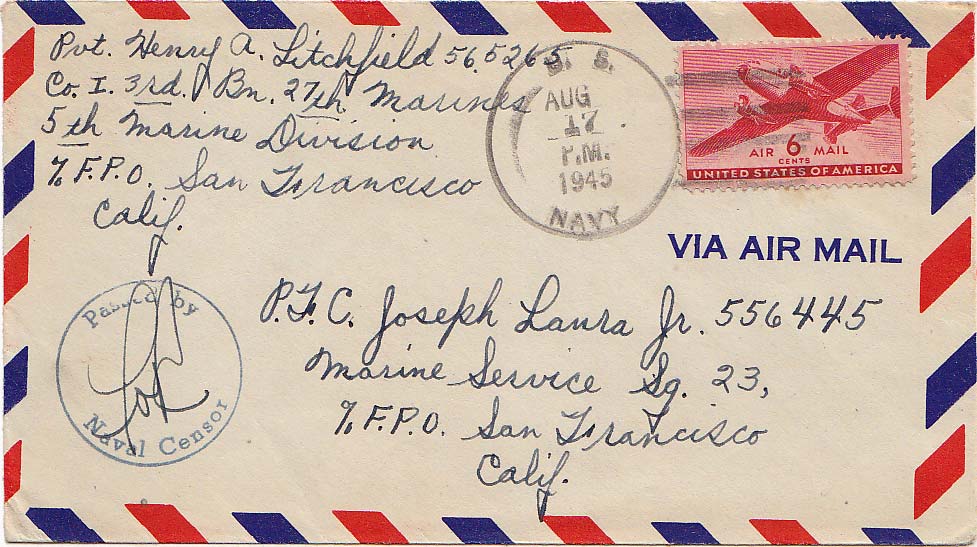 Pvt. Henry A. Litchfield 565265
Co. I. 3rd. Bn. 27th. Marines
5th Marine Division
% F.P.O. San Francisco
Calif.
U. S.
AUG
17
P.M.
1945
NAVY
AIR 6 MAIL
CENTS
UNITED STATES OF AMERICA
VIA AIR MAIL
Passed by
Naval Censor
P.F.C. Joseph Laura Jr. 556445
Marine Service Sq. 23,
% F.P.O. San Francisco
Calif.